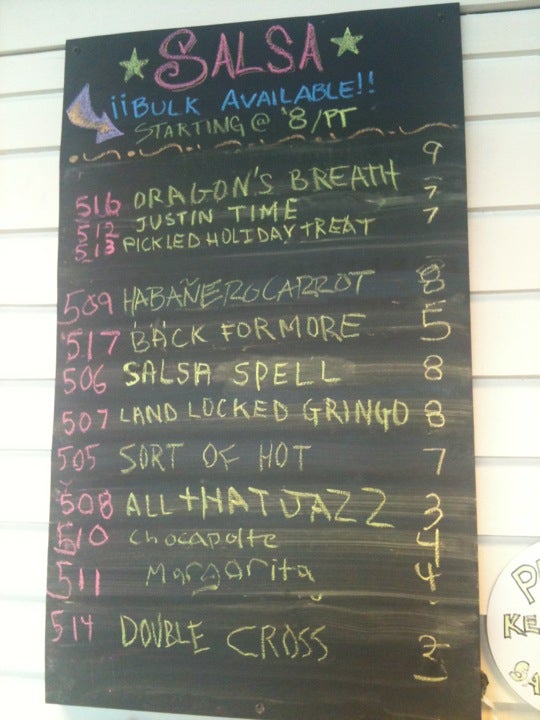 SALSA
¡¡BULK AVAILABLE!!
STARTING @ $8/PT
516 DRAGON'S BREATH 9
512 JUSTIN TIME 7
513 PICKLED HOLIDAY TREAT 7
509 HABAÑERO CARROT 8
517 BACK FOR MORE 5
506 SALSA SPELL 8
507 LAND LOCKED GRINGO 8
505 SORT OF HOT 7
508 ALL THAT JAZZ 3
510 Chocapolte 4
511 Margarita 4
514 DOUBLE CROSS 2
P
KE
$4